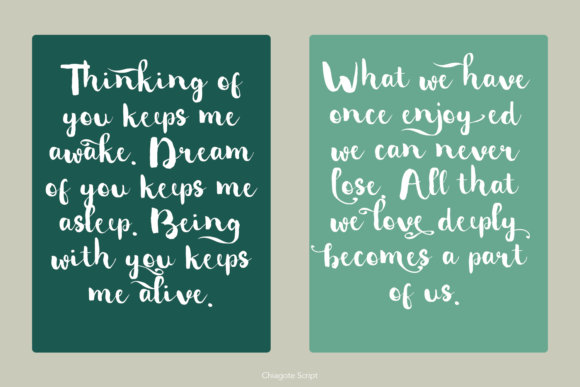 Thinking of
you keeps me
awake. Dream
of you keeps me
asleep. Being
with you keeps
me alive.
What we have
once enjoy ed
we can never
lose. All that
we love deeply
becomes a part
of us.
Chiagote Script